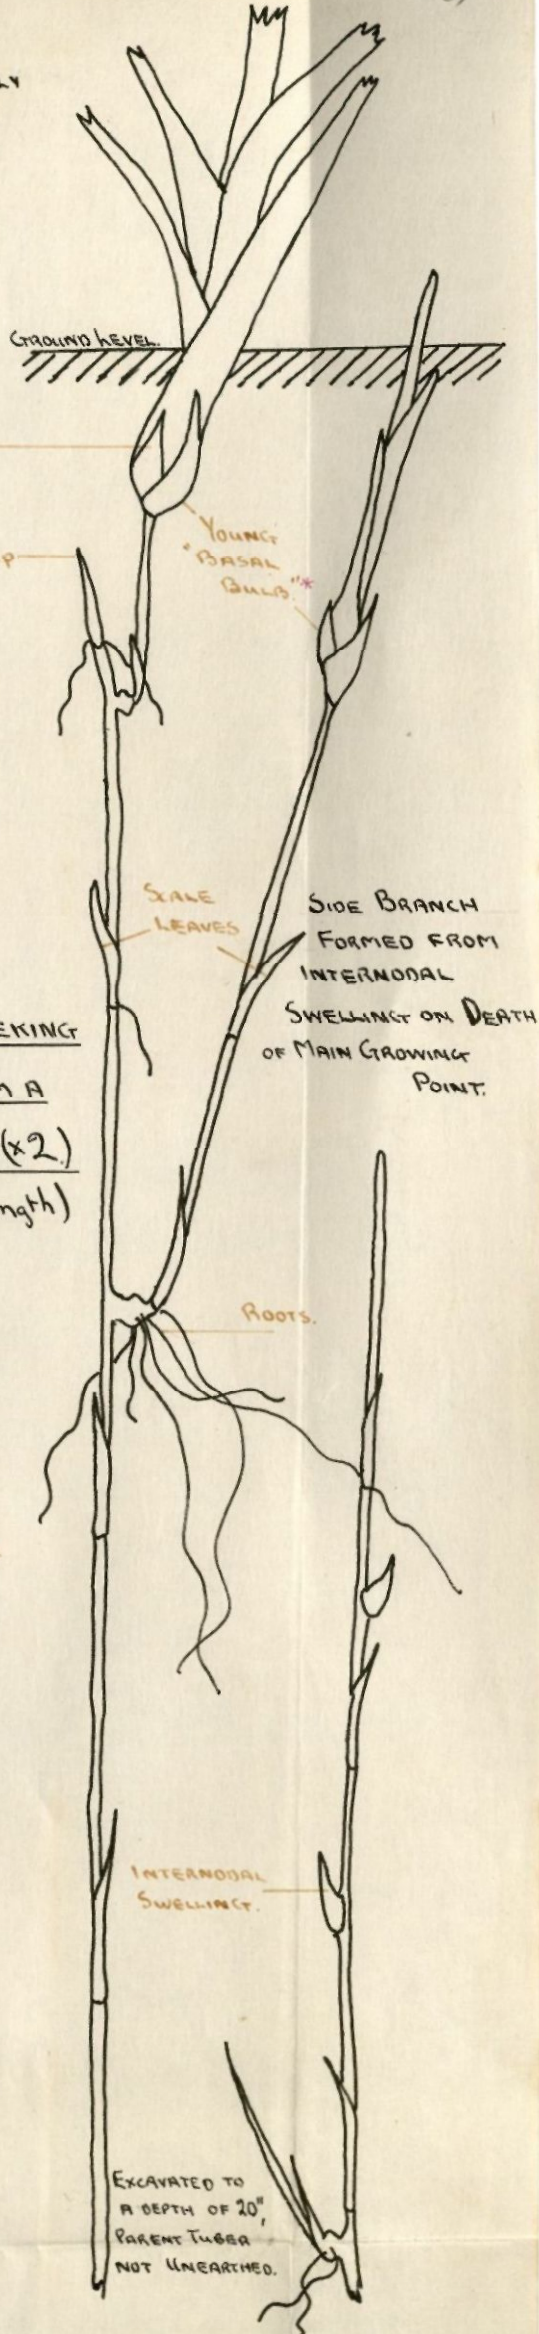 GROUND LEVEL.
P
YOUNG
"BASAL
BULB."*
SCALE
LEAVES
SIDE BRANCH
FORMED FROM
INTERNODAL
SWELLING ON DEATH
OF MAIN GROWING
POINT.
EKING
A
(x2)
ngth)
ROOTS.
INTERNODAL
SWELLING.
EXCAVATED TO
A DEPTH OF 20",
PARENT TUBER
NOT UNEARTHED.